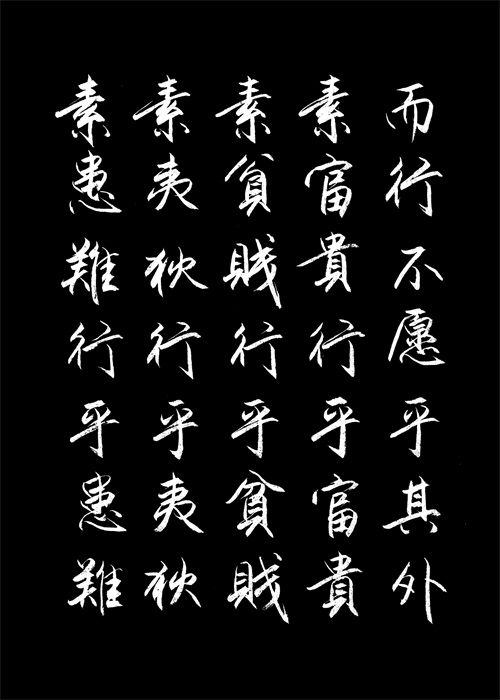 而行不愿乎其外
素富貴行乎富貴
素貧賤行乎貧賤
素夷狄行乎夷狄
素患難行乎患難